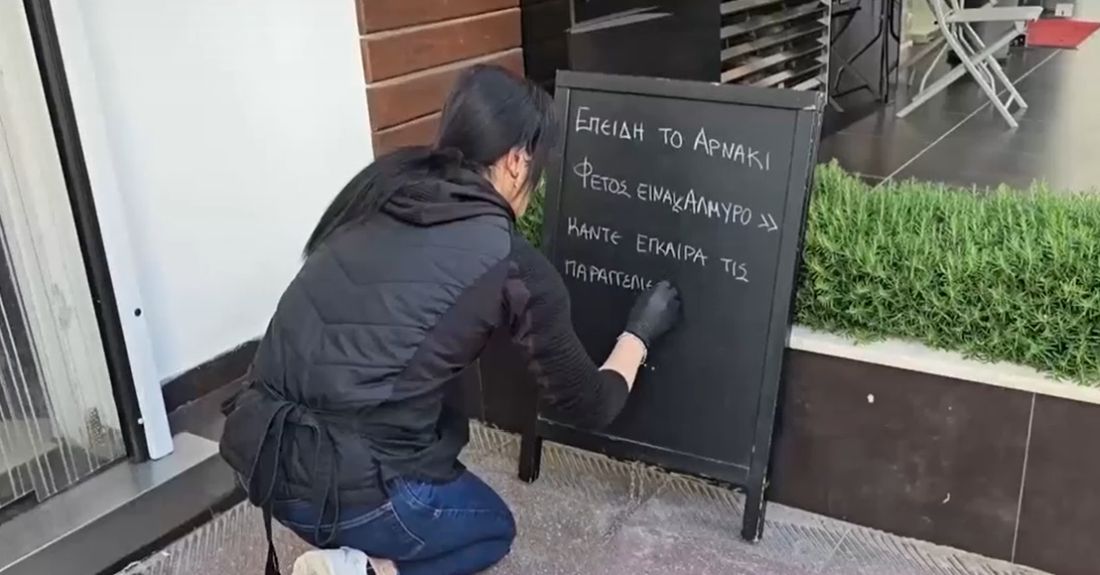 ΕΠΕΙΔΗ ΤΟ ΑΡΝΑΚΙ
ΦΕΤΟΣ ΕΙΝΑΙ «ΑΛΜΥΡΟ»
ΚΑΝΤΕ ΕΓΚΑΙΡΑ ΤΙΣ
ΠΑΡΑΓΓΕΛΙΕ